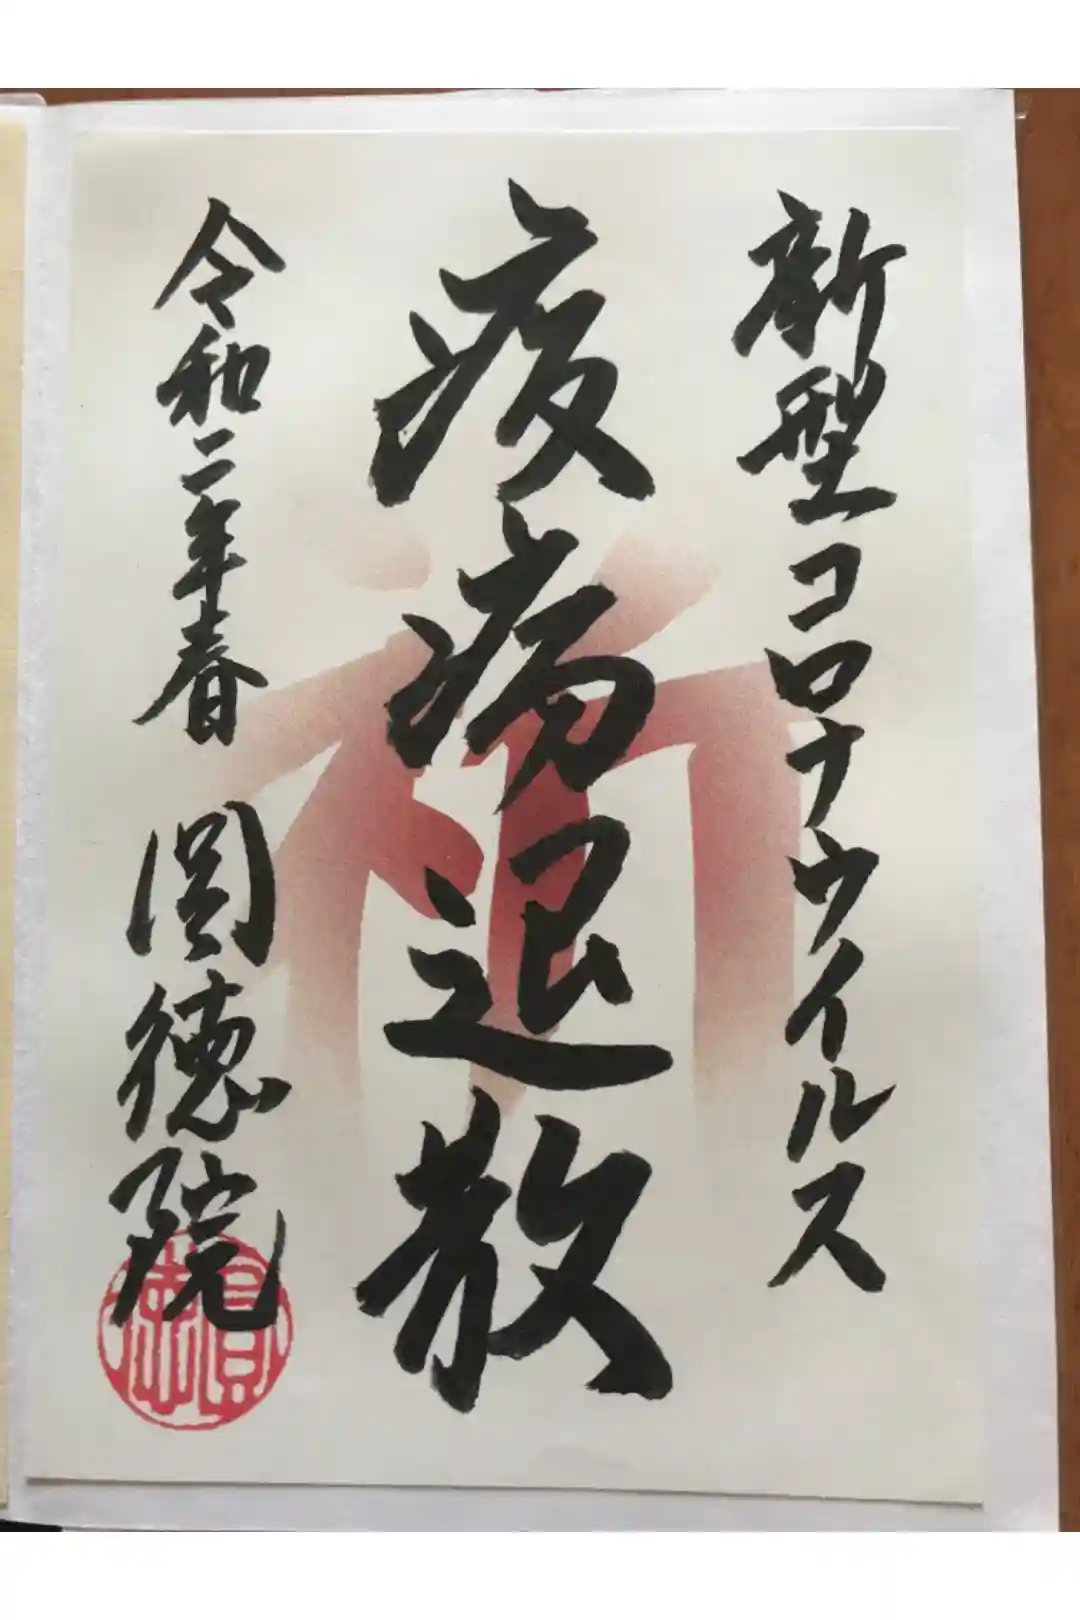 新型コロナウイルス
疫病退散
祈
令和二年春 圓徳院